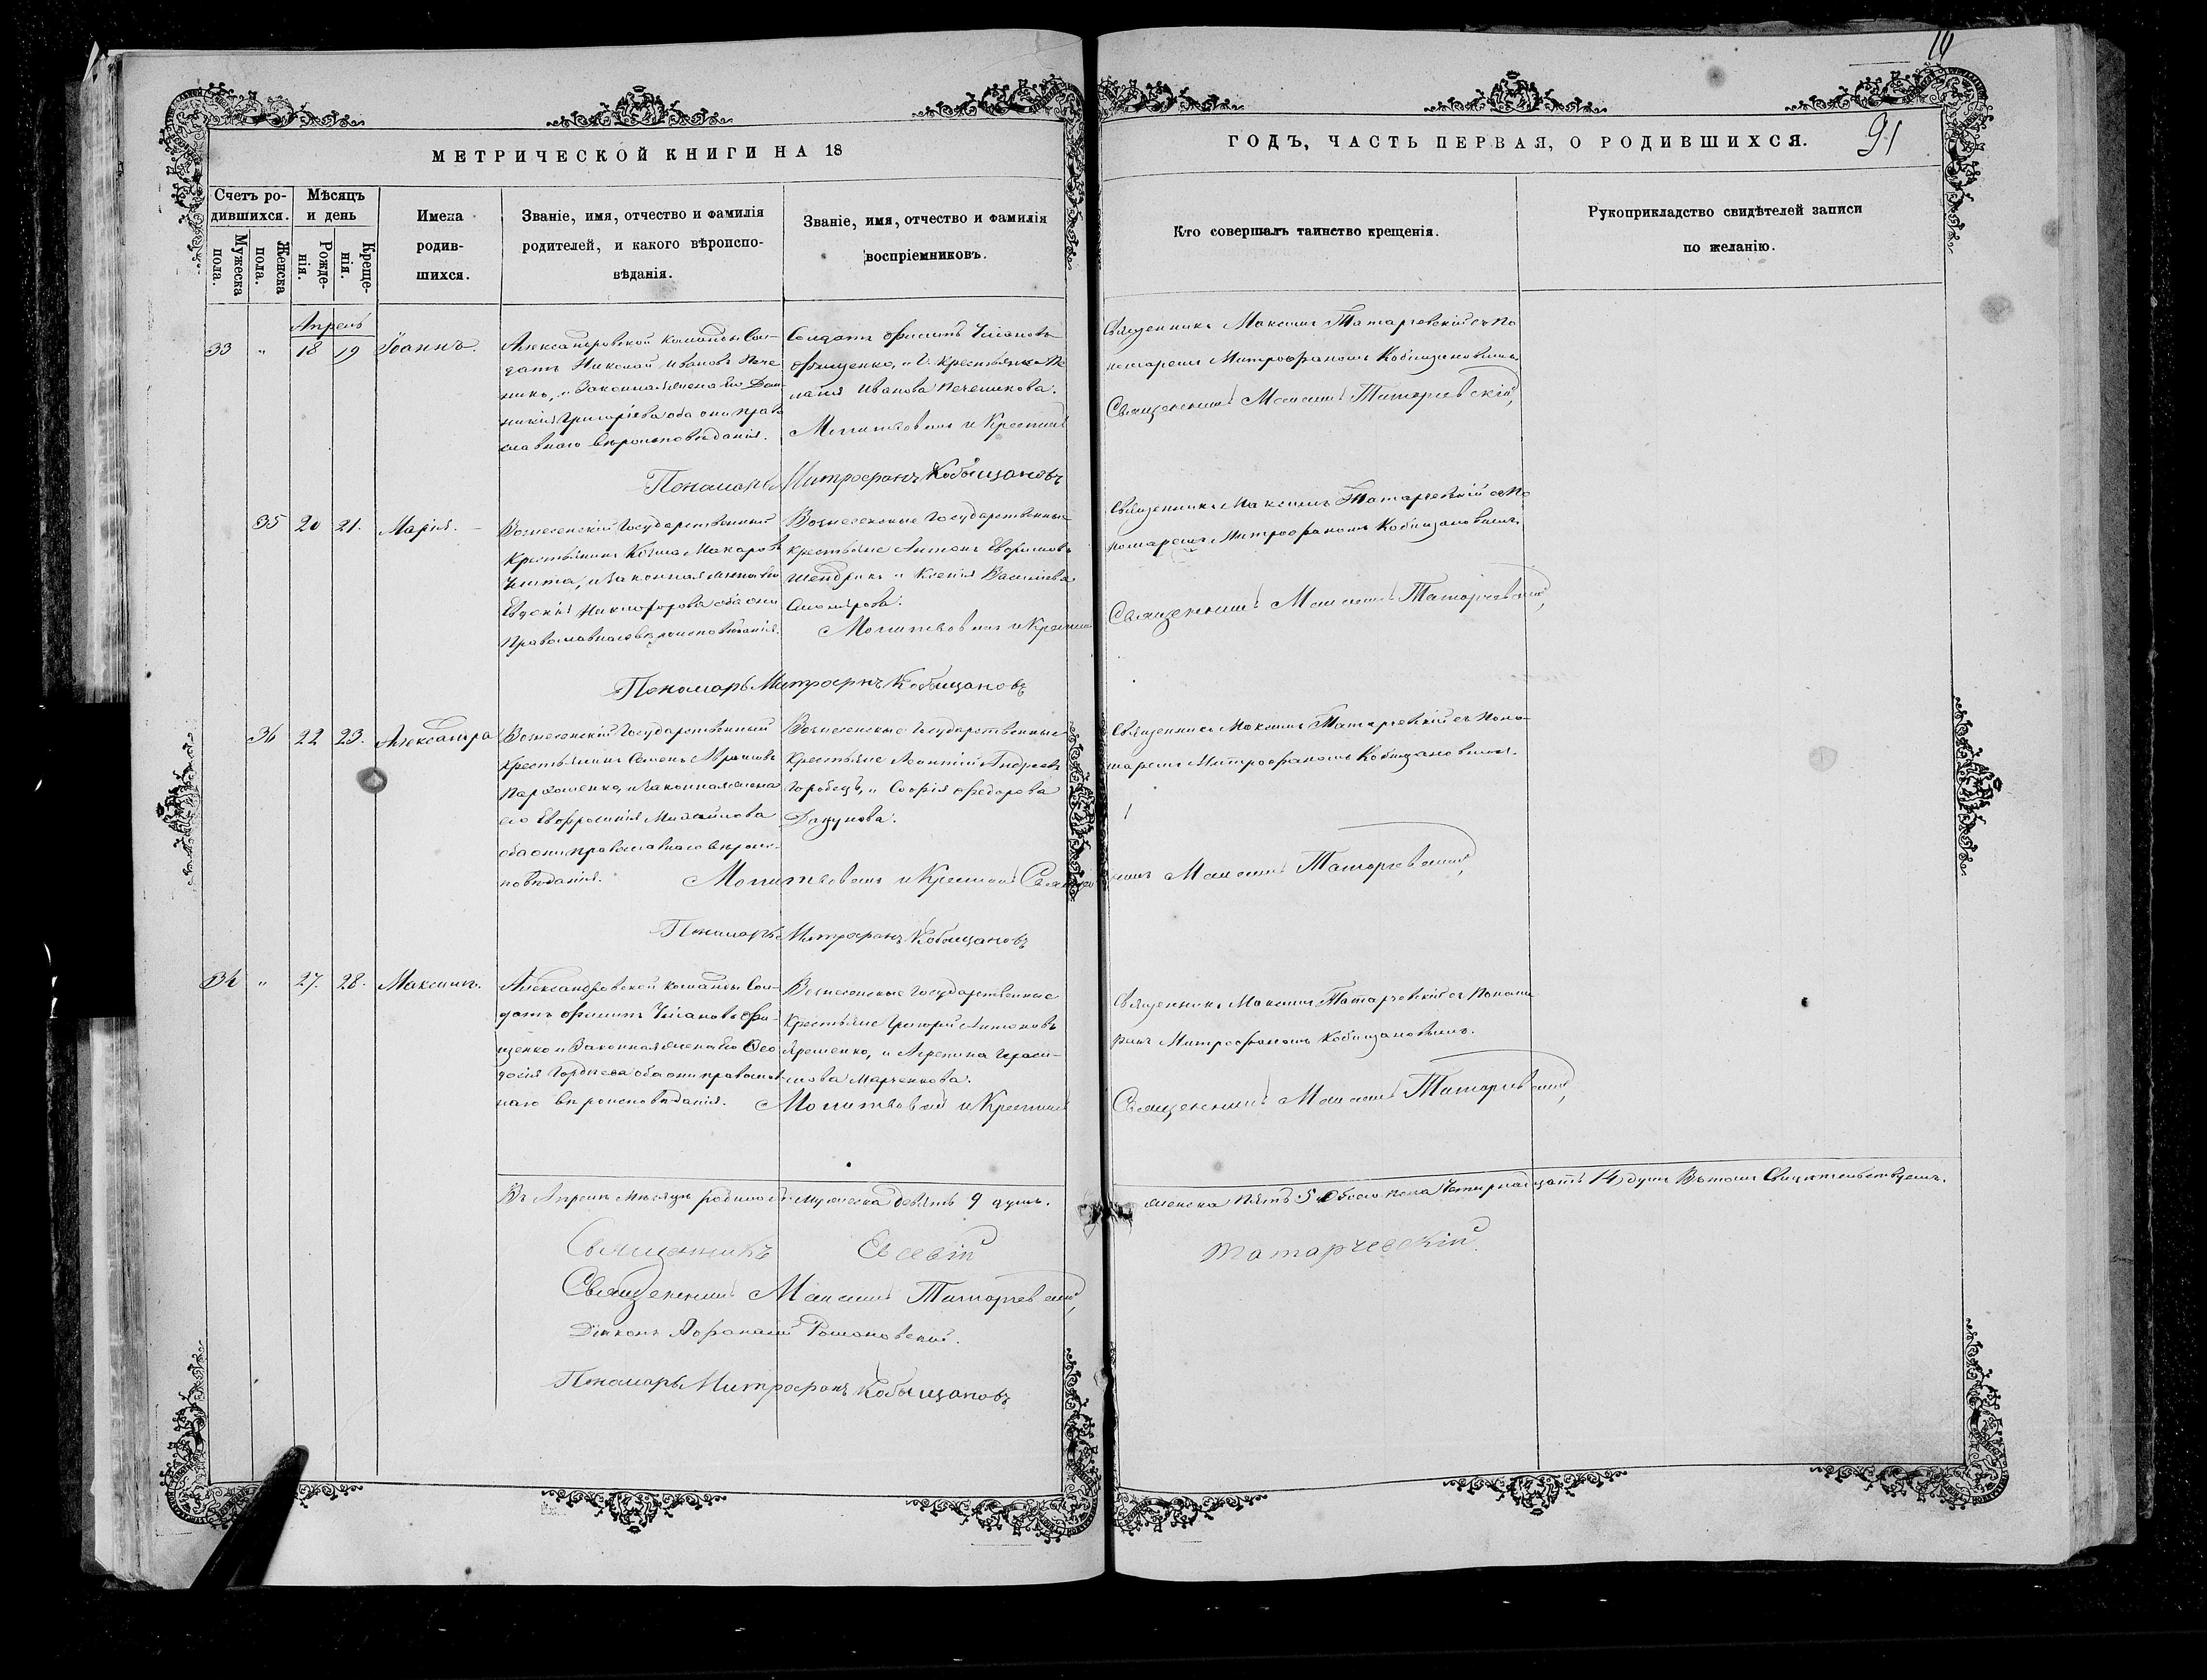 91
МЕТРИЧЕСКОЙ КНИГИ НА 18
ГОДЪ, ЧАСТЬ ПЕРВАЯ, О РОДИВШИХСЯ.
Счетъ ро-
дившихся.
Мужеска
пола.
Женска
пола.
Мѣсяцъ
и день
Рожде-
нія.
Креще-
нія.
Имена
родив-
шихся.
Званіе, имя, отчество и фамилія
родителей, и какого вѣроиспо-
вѣданія.
Званіе, имя, отчество и фамилія
воспріемниковъ.
Кто совершалъ таинство крещенія.
Рукоприкладство свидѣтелей записи
по желанію.
Апрель
33 " 18 19 Іоаннъ.
Александровской команды Сол-
датъ Николай Ивановъ Пече
никъ, и Законная жена его Дом-
никія Григоріева оба они право
славнаго вѣроисповѣданія.
Солдатъ Филипъ
Фищенко, и
Иванова Печеникова.
Молитвовалъ и Крестилъ
Священникъ Максимъ Татарчевскій съ По
номаремъ Митрофаномъ Кобищановымъ
Священникъ Максимъ Татарчевскій
Пономарь Митрофанъ Кобыщановъ
35 20 21. Марія.
Вознесенскій Государственный
Крестьянинъ Козма Макаровъ
и Законная жена его
Никифорова оба они
Православнаго вѣроисповѣданія.
Вознесенские Государственные
крестьяне Антонъ Евфимовъ
Шендрикъ и Ксенія Васильева
Молитвовалъ и Крестилъ
Священникъ Максимъ Татарчевскій съ По
номаремъ Митрофаномъ Кобищановымъ
Священникъ Максимъ Татарчевскій
Пономарь Митрофнъ Кобыщановъ
36 22 23. Александра
Вознесенскій Государственный
крестьянинъ Семенъ Абрамовъ
Пархоменко, и Законная жена
его Евфросинія Михайлова
оба они православнаго вѣроис-
повѣданія.
Вознесенские Государственные
Крестьяне Леонтій Андреевъ
Горобецъ, и Софія Федорова
Молитвовалъ и Крестилъ Священ
никъ Максимъ Татарчевскій
Священникъ Максимъ Татарчевскій съ Поно-
маремъ Митрофаномъ Кобищановымъ.
Пономарь Митрофанъ Кобыщановъ
34 " 27. 28. Максимъ.
Александровской команды Сол-
датъ Филипъ Фи-
щенко и Законная жена его Фео
досія Гордѣева оба они православ
наго вѣроисповѣданія.
Вознесенские Государственные
Крестьяне Григорій Антоновъ
Ярешенко, и Агрепина Гераси-
мова Марченкова.
Молитвовалъ и Крестилъ
Священникъ Максимъ Татарчевскій съ Понома
ремъ Митрофаномъ Кобищановымъ.
Священникъ Максимъ Татарчевскій
Въ Апрель мѣсяцѣ родилось мужеска девять 9 душъ.
женска Пять 5 Обоего пола Четырнадцать 14 душъ Въ томъ Свидѣтельствуемъ.
Священникъ Евсевій Татарчевскій.
Священникъ Максимъ Татарчевскій
Діаконъ Афанасій Романовскій.
Пономарь Митрофанъ Кобыщановъ